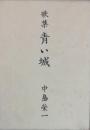 歌集
青い城
中島栄一